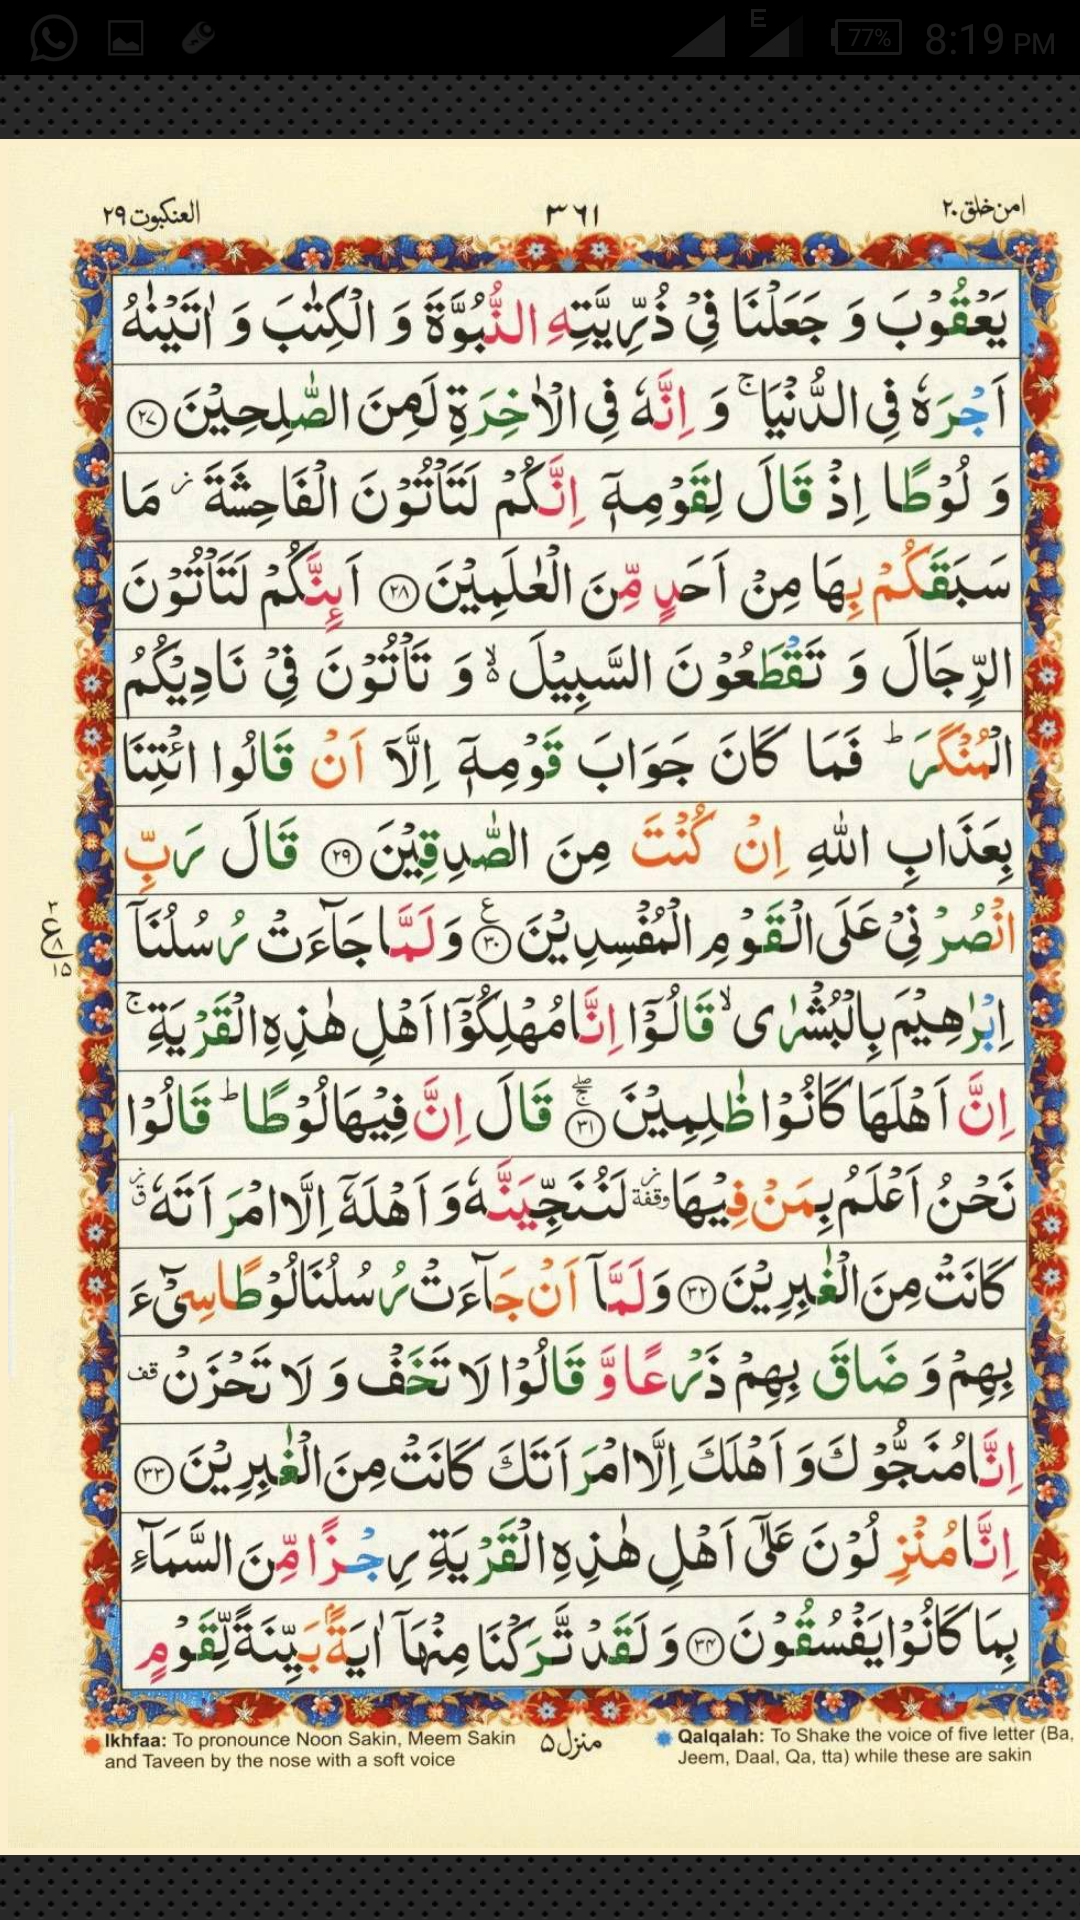 8:19 PM
77%
E
امن خلق ۲۰
۳۶۱
العنکبوت ۲۹
يَعْقُوْبَ وَ جَعَلْنَا فِيْ ذُرِّيَّتِهِ النُّبُوَّةَ وَ الْكِتٰبَ وَ اٰتَيْنٰهُ
اَجْرَهٗ فِي الدُّنْيَا ۚ وَ اِنَّهٗ فِي الْاٰخِرَةِ لَمِنَ الصّٰلِحِيْنَ ۲۷
وَ لُوْطًا اِذْ قَالَ لِقَوْمِهٖۤ اِنَّكُمْ لَتَاْتُوْنَ الْفَاحِشَةَ ؗ مَا
سَبَقَكُمْ بِهَا مِنْ اَحَدٍ مِّنَ الْعٰلَمِيْنَ ۲۸ اَىِٕنَّكُمْ لَتَاْتُوْنَ
الرِّجَالَ وَ تَقْطَعُوْنَ السَّبِيْلَ ۙ۬ وَ تَاْتُوْنَ فِيْ نَادِيْكُمُ
الْمُنْكَرَ ؕ فَمَا كَانَ جَوَابَ قَوْمِهٖۤ اِلَّاۤ اَنْ قَالُوا ائْتِنَا
بِعَذَابِ اللّٰهِ اِنْ كُنْتَ مِنَ الصّٰدِقِيْنَ ۲۹ قَالَ رَبِّ
انْصُرْنِيْ عَلَى الْقَوْمِ الْمُفْسِدِيْنَ ۳۰ ع وَ لَمَّا جَآءَتْ رُسُلُنَاۤ
۲
ع
۸
۱۵
اِبْرٰهِيْمَ بِالْبُشْرٰى ۙ قَالُوْۤا اِنَّا مُهْلِكُوْۤا اَهْلِ هٰذِهِ الْقَرْيَةِ ۚ
اِنَّ اَهْلَهَا كَانُوْا ظٰلِمِيْنَ ۳۱ ۖۚ قَالَ اِنَّ فِيْهَا لُوْطًا ؕ قَالُوْا
نَحْنُ اَعْلَمُ بِمَنْ فِيْهَا ؗ وقفة لَنُنَجِّيَنَّهٗ وَ اَهْلَهٗۤ اِلَّا امْرَاَتَهٗ ؗ ق
كَانَتْ مِنَ الْغٰبِرِيْنَ ۳۲ وَ لَمَّاۤ اَنْ جَآءَتْ رُسُلُنَا لُوْطًا سِيْٓءَ
بِهِمْ وَ ضَاقَ بِهِمْ ذَرْعًا وَّ قَالُوْا لَا تَخَفْ وَ لَا تَحْزَنْ قف
اِنَّا مُنَجُّوْكَ وَ اَهْلَكَ اِلَّا امْرَاَتَكَ كَانَتْ مِنَ الْغٰبِرِيْنَ ۳۳
اِنَّا مُنْزِلُوْنَ عَلٰۤى اَهْلِ هٰذِهِ الْقَرْيَةِ رِجْزًا مِّنَ السَّمَآءِ
بِمَا كَانُوْا يَفْسُقُوْنَ ۳۴ وَ لَقَدْ تَّرَكْنَا مِنْهَاۤ اٰيَةًۢ بَيِّنَةً لِّقَوْمٍ
Ikhfaa: To pronounce Noon Sakin, Meem Sakin
and Taveen by the nose with a soft voice
منزل ۵
Qalqalah: To Shake the voice of five letter (Ba,
Jeem, Daal, Qa, tta) while these are sakin